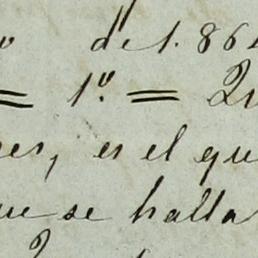 de 1.86
= 1º. =
es, es el que
que se halla